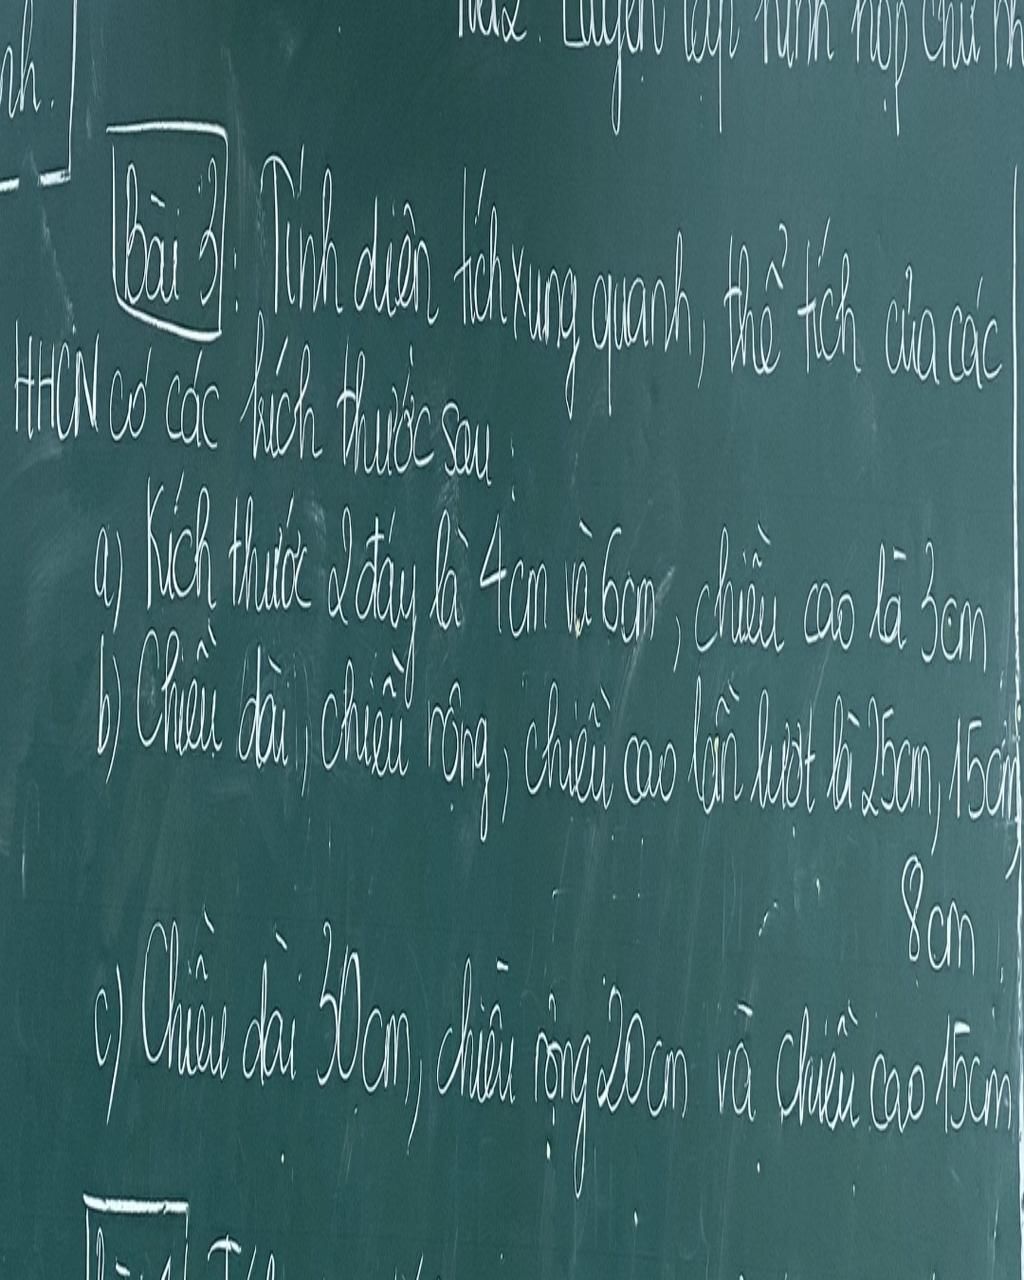 Luyện tập hình hộp chữ nh
nh.
Bài 3: Tính diện tích xung quanh, thể tích của các
HHCN có các kích thước sau:
a) Kích thước 2 đáy là 4cm và 6cm, chiều cao là 3cm
b) Chiều dài, chiều rộng, chiều cao lần lượt là 25cm, 15cm,
8cm.
c) Chiều dài 30cm, chiều rộng 20cm và chiều cao 15cm